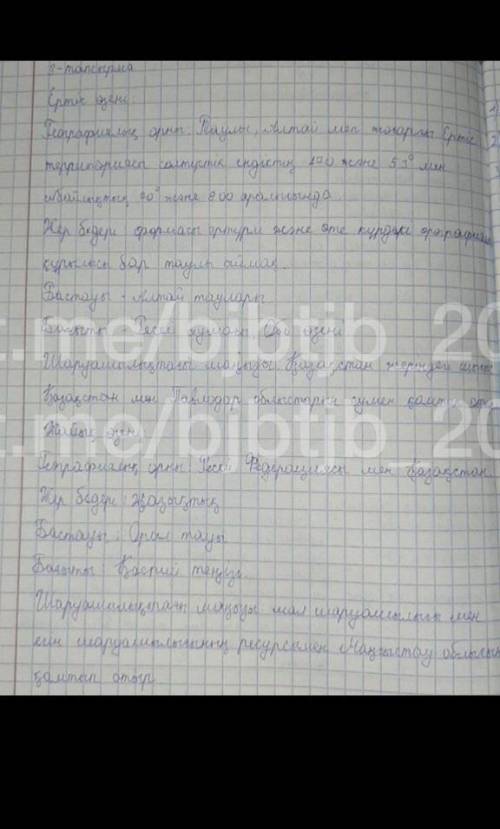 8-тапсырма
Ертіс өзені
Географиялық орны: Таулы, Алтай мен жоғарғы Ертіс
территориясы солтүстік ендіктің 490 және 51° мен
шығыс 90° және 800 аралығында
Жер бедері формасы әртүрлі және өте күрделі орографиялық
құрылысы бар таулы аймақ.
Бастауы - Алтай таулары
Бағыты - Ресей аумағы Обь өзені
Шаруашылықтағы маңызы Қазақстан жеріндегі шығыс
Қазақстан мен Павлодар облыстарын сумен қамтып отыр
Жайық өзені
Географиялық орны: Ресей Федерациясы мен Қазақстан
Жер бедері: жазықтық
Бастауы: Орал тауы
Бағыты: Каспий теңізі.
Шаруашылықтағы маңызы мал шаруашылығы мен
егін шаруашылығының ресурсымен Маңғыстау облысын
қамтып отыр
t.me/bjbtib_20
t.me/bjbtib_20